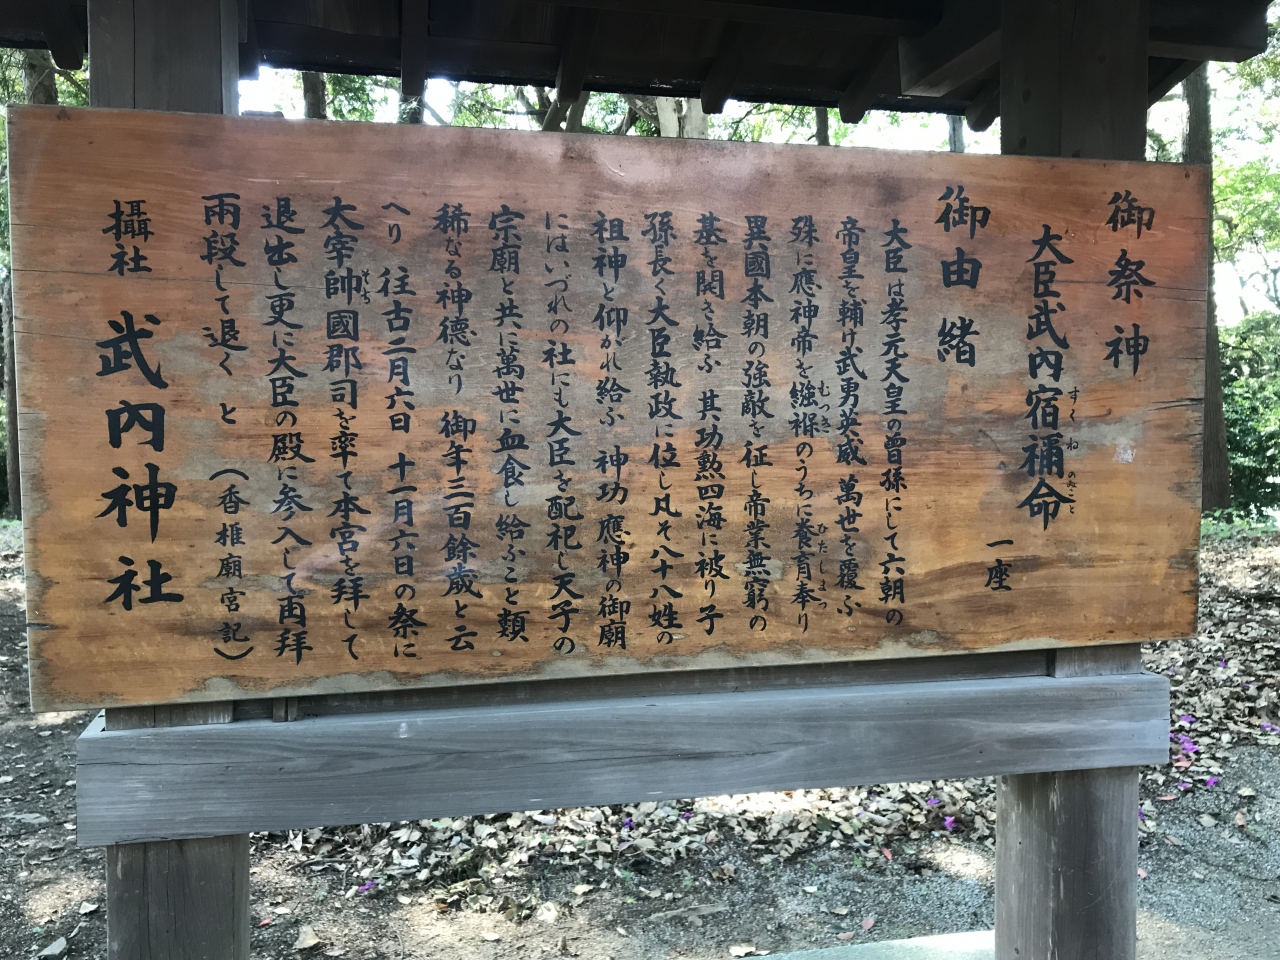 御祭神
大臣武內宿禰命
すくねのみこと
一座
御由緒
大臣は孝元天皇の曾孫にして六朝の
帝皇を輔け武勇英威萬世を覆ふ
殊に應神帝を繈褓のうちに養育奉り
むつき
ひたしまつ
異國本朝の強敵を征し帝業無窮の
基を開き給ふ 其功勲四海に被り子
孫長く大臣執政に位し凡そ八十八姓の
祖神と仰がれ給ふ 神功應神の御廟
には、いづれの社にも大臣を配祀し天子の
宗廟と共に萬世に血食し給ふこと類
稀なる神德なり 御年三百餘歳と云
へり 往古二月六日 十一月六日の祭に
太宰帥國郡司を率て本宮を拜して
そち
退出し更に大臣の殿に参入して再拜
兩段して退くと (香椎廟宮記)
攝社 武內神社